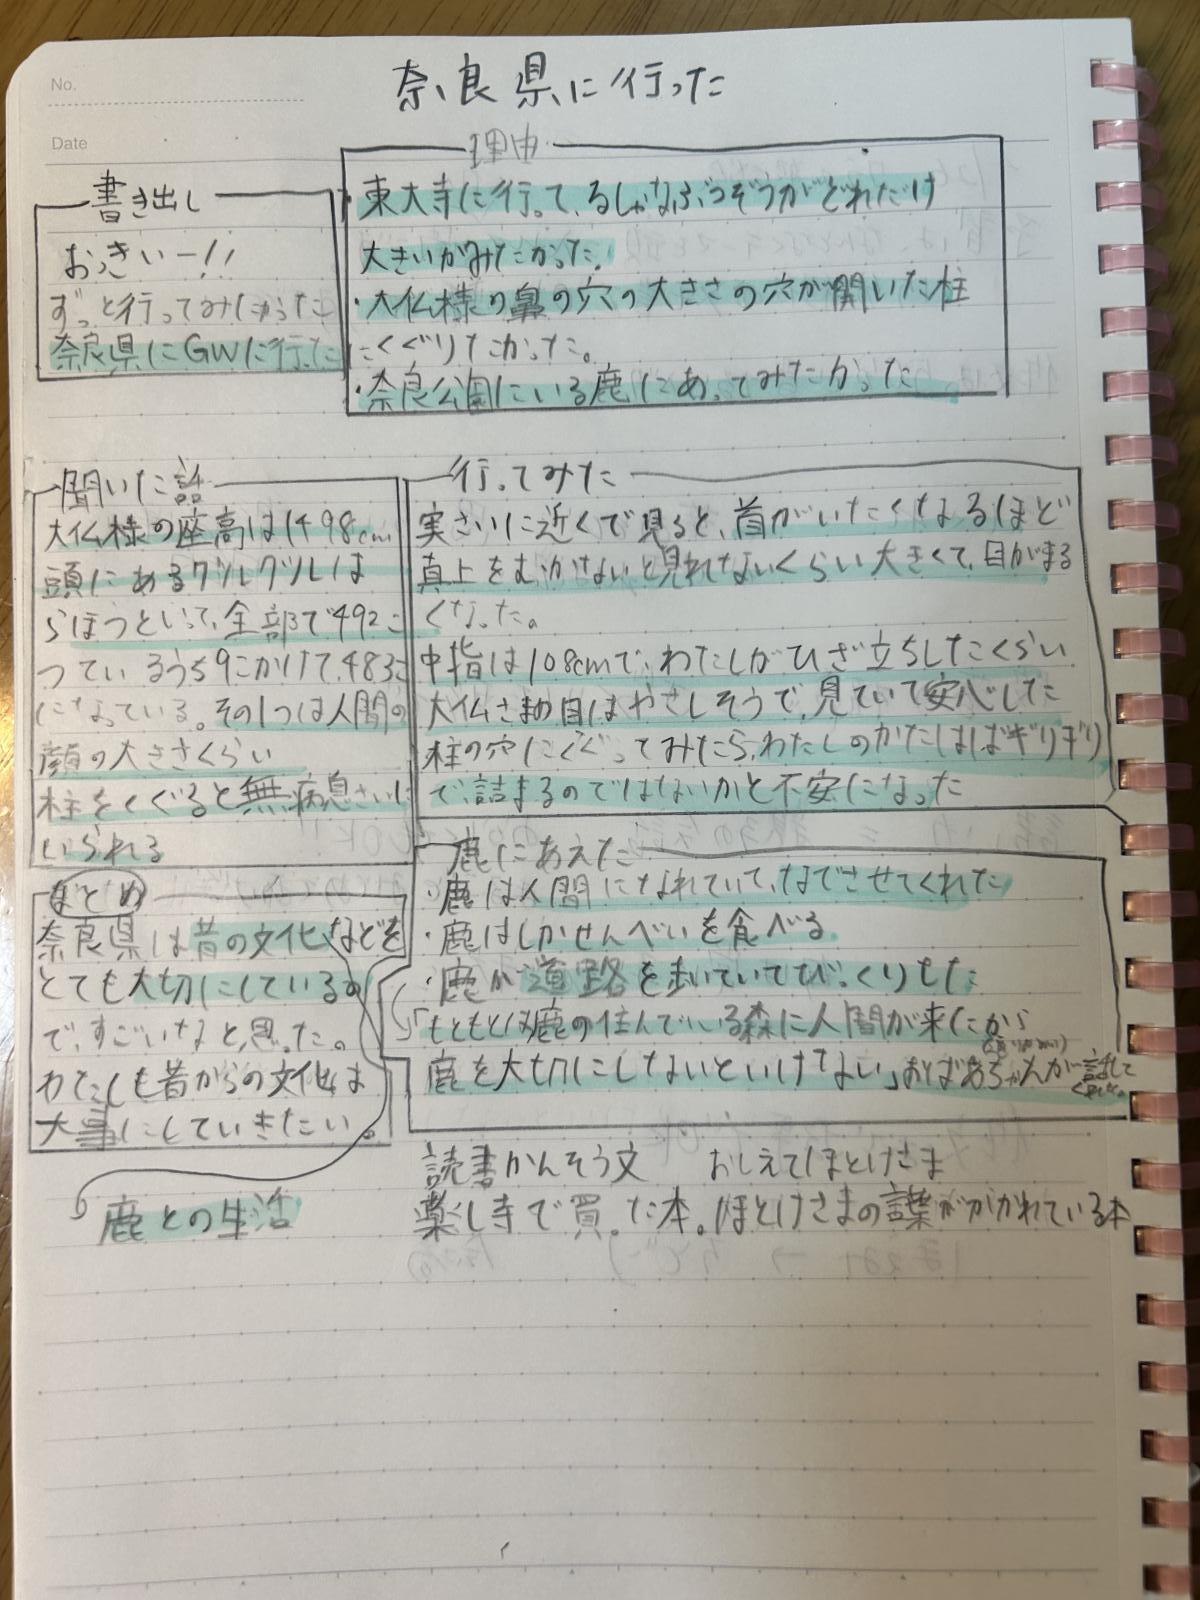 No.
Date
奈良県に行った
書き出し
おっきいー!!
ずっと行ってみたかった
奈良県にGWに行った
理由
東大寺に行って、るしゃなぶつぞうがどれだけ
大きいかみたかった。
・大仏様の鼻の穴の大きさの穴が開いた柱
にくぐりたかった。
・奈良公園にいる鹿にあってみたかった
聞いた話
大仏様の座高は1498cm
頭にあるクツレクツレは
らほつといって、全部で492こ
ついているうち9こかけて、483こ
になっている。その1つは人間の
顔の大きさくらい
柱をくぐると無病息さいに
いられる
行ってみた
実さいに近くで見ると、首がいたくなるほど
真上をむかないと見れないくらい大きくて、目がまる
くなった。
中指は108cmで、わたしがひざ立ちしたくらい
大仏さまの目はやさしそうで、見ていて安心した
柱の穴にくぐってみたら、わたしのかたはばギリギリ
で、詰まるのではないかと不安になった
鹿にあえた
・鹿は人間になれていて、なでさせてくれた
・鹿はしかせんべいを食べる
・鹿が道路を歩いていてびっくりした
「もともとは鹿の住んでいる森に人間が来たから
鹿を大切にしないといけない」おばあちゃんが話して
くれた。
まとめ
奈良県は昔の文化などを
とても大切にしているの
で、すごいなと思った。
わたしも昔からの文化は
大事にしていきたい。
鹿との生活
読書かんそう文 おしえてほとけさま
薬し寺で買った本。ほとけさまの言葉がかかれている本